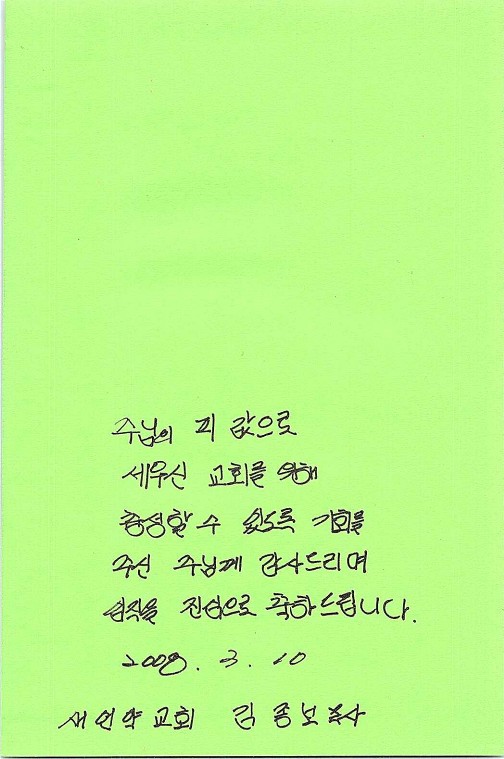 주님의 피 값으로
세우신 교회를 위해
충성할 수 있도록 기회를
주신 주님께 감사드리며
임직을 진심으로 축하드립니다.
2008. 3. 10
새언약교회 김종보 목사